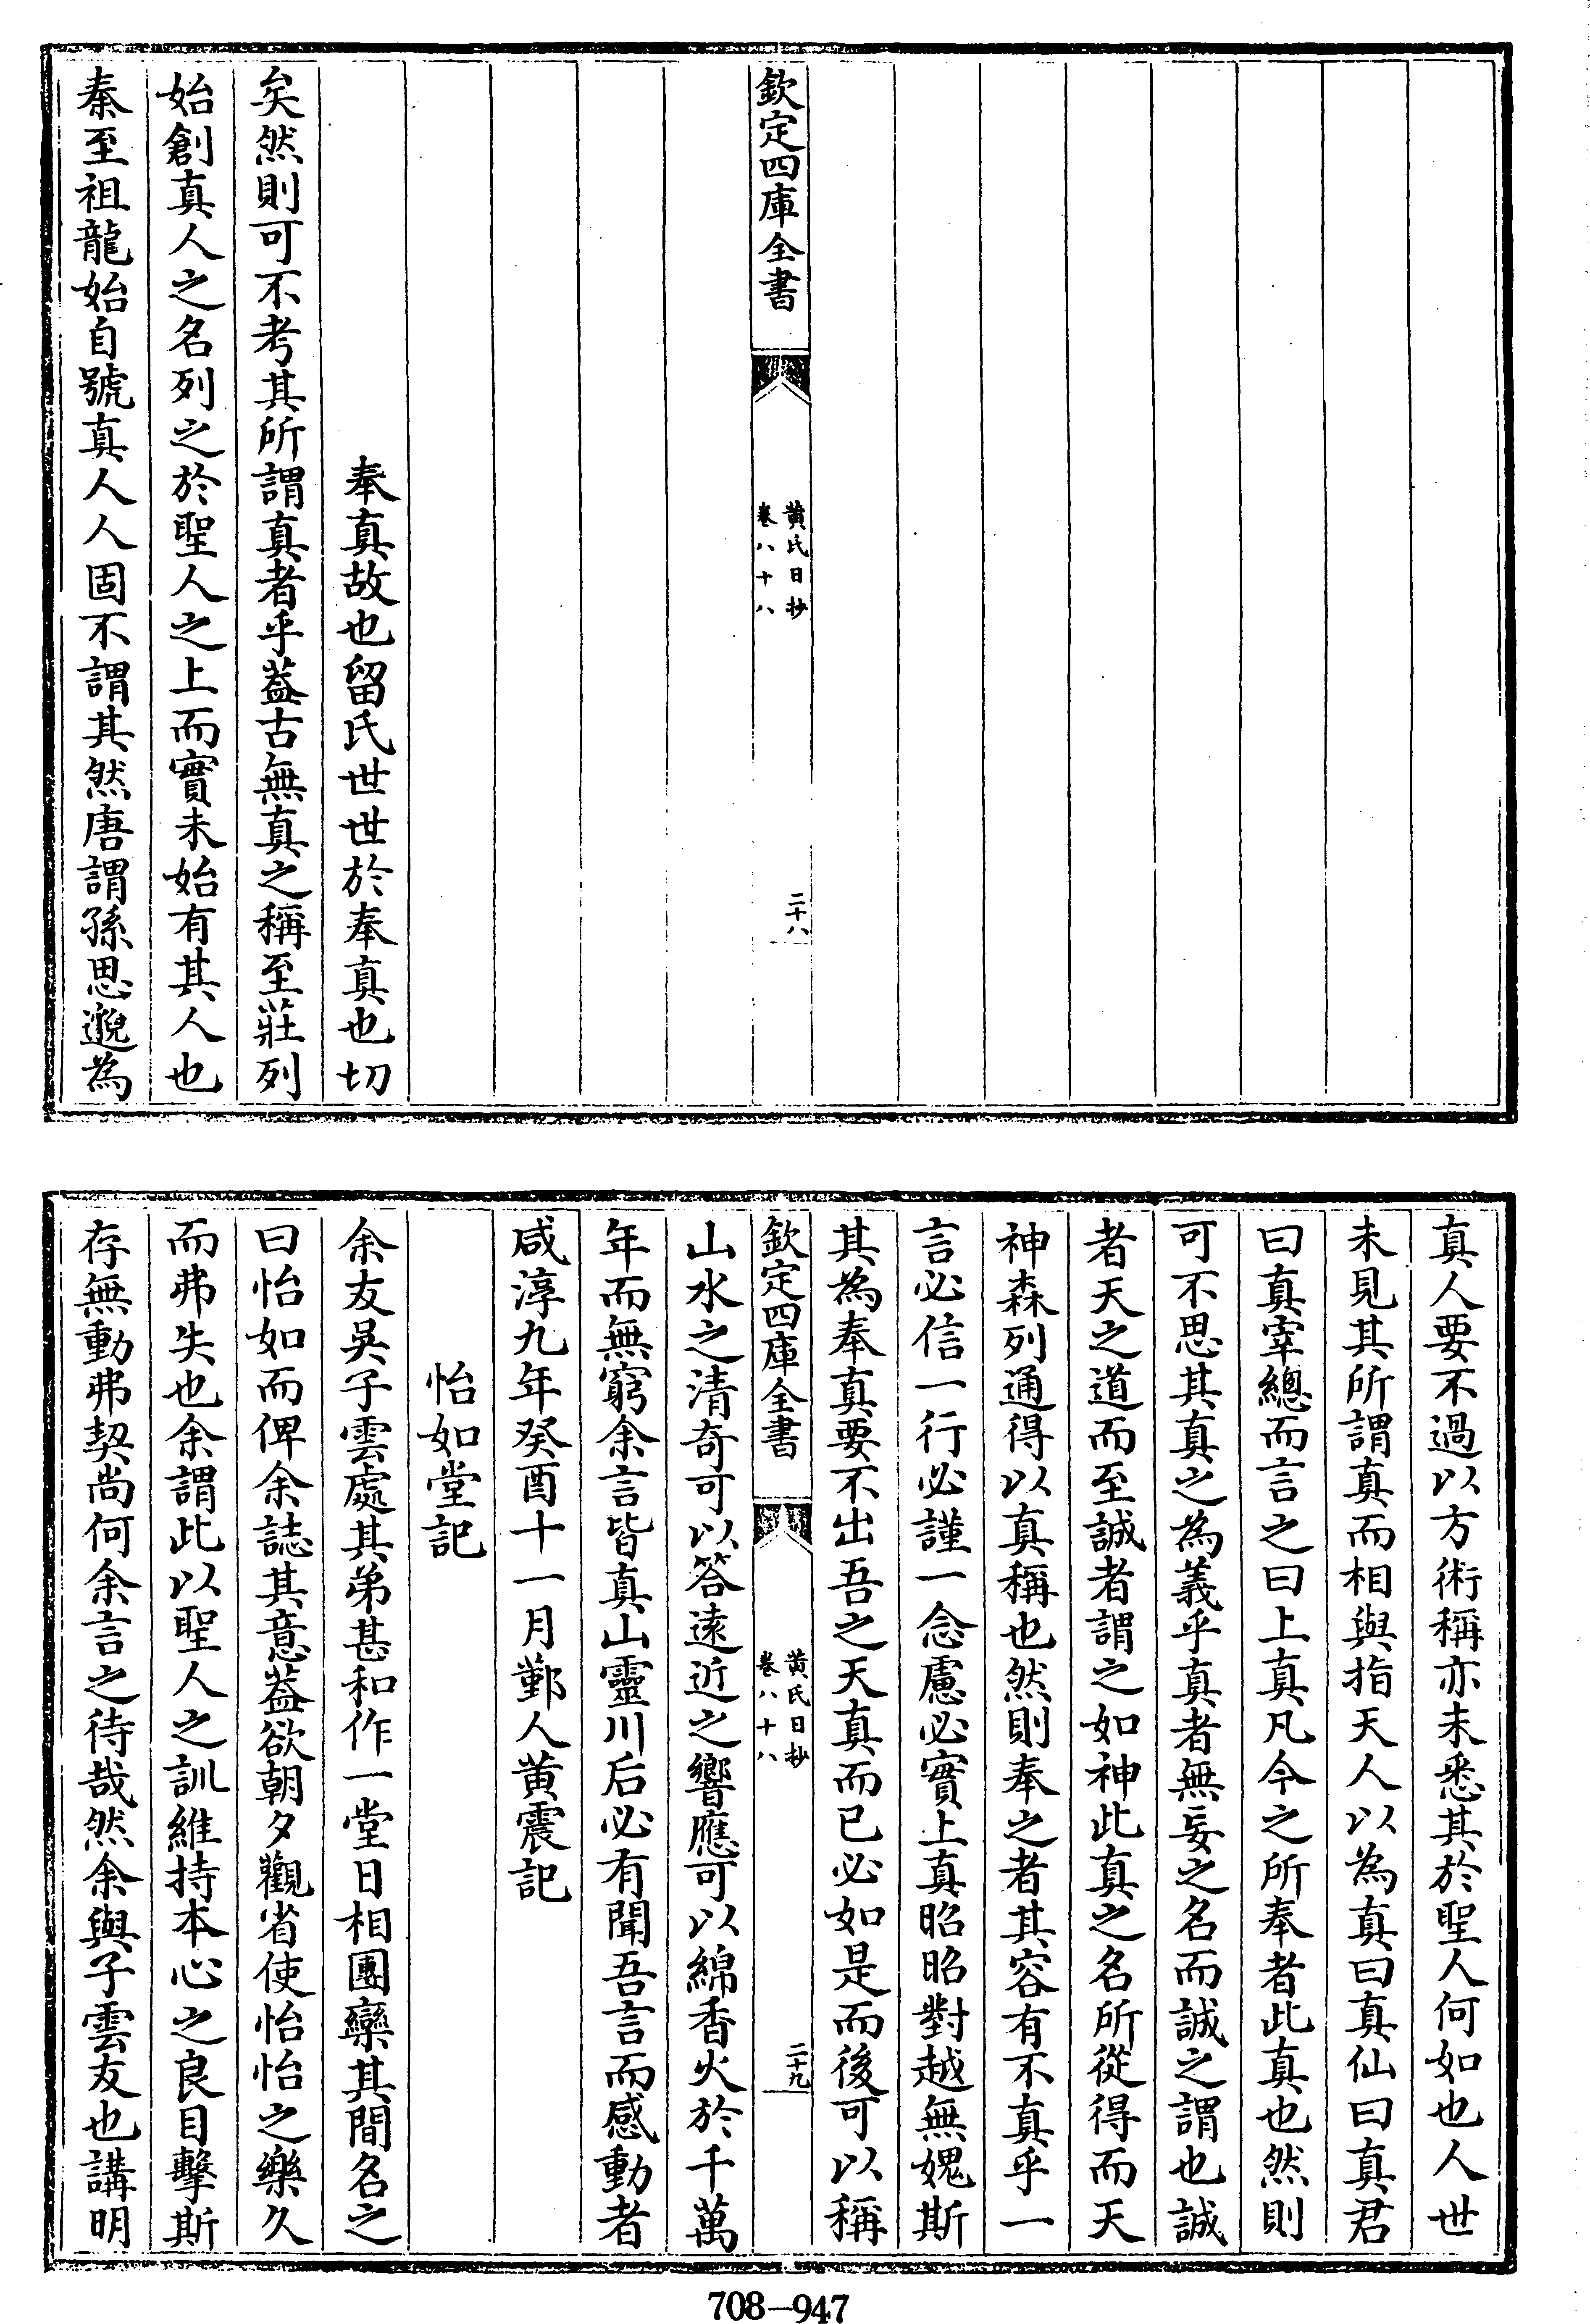 欽定四庫全書
黄氏日抄
卷八十八
二十八
奉真故也留氏世世於奉真也切
矣然則可不考其所謂真者乎葢古無真之稱至莊列
始創真人之名列之於聖人之上而實未始有其人也
秦至祖龍始自號真人人固不謂其然唐謂孫思邈為
真人要不過以方術稱亦未悉其於聖人何如也人世
未見其所謂真而相與指天人以為真曰真仙曰真君
曰真宰總而言之曰上真凡今之所奉者此真也然則
可不思其真之為義乎真者無妄之名而誠之謂也誠
者天之道而至誠者謂之如神此真之名所從得而天
神森列通得以真稱也然則奉之者其容有不真乎一
言必信一行必謹一念慮必實上真昭昭對越無媿斯
其為奉真要不出吾之天真而已必如是而後可以稱
欽定四庫全書
黄氏日抄
卷八十八
二十九
山水之清奇可以答遠近之響應可以綿香火於千萬
年而無窮余言皆真山靈川后必有聞吾言而感動者
咸淳九年癸酉十一月鄞人黄震記
怡如堂記
余友吳子雲處其弟甚和作一堂日相團欒其間名之
曰怡如而俾余誌其意葢欲朝夕觀省使怡怡之樂久
而弗失也余謂此以聖人之訓維持本心之良目擊斯
存無動弗契尚何余言之待哉然余與子雲友也講明
708-947